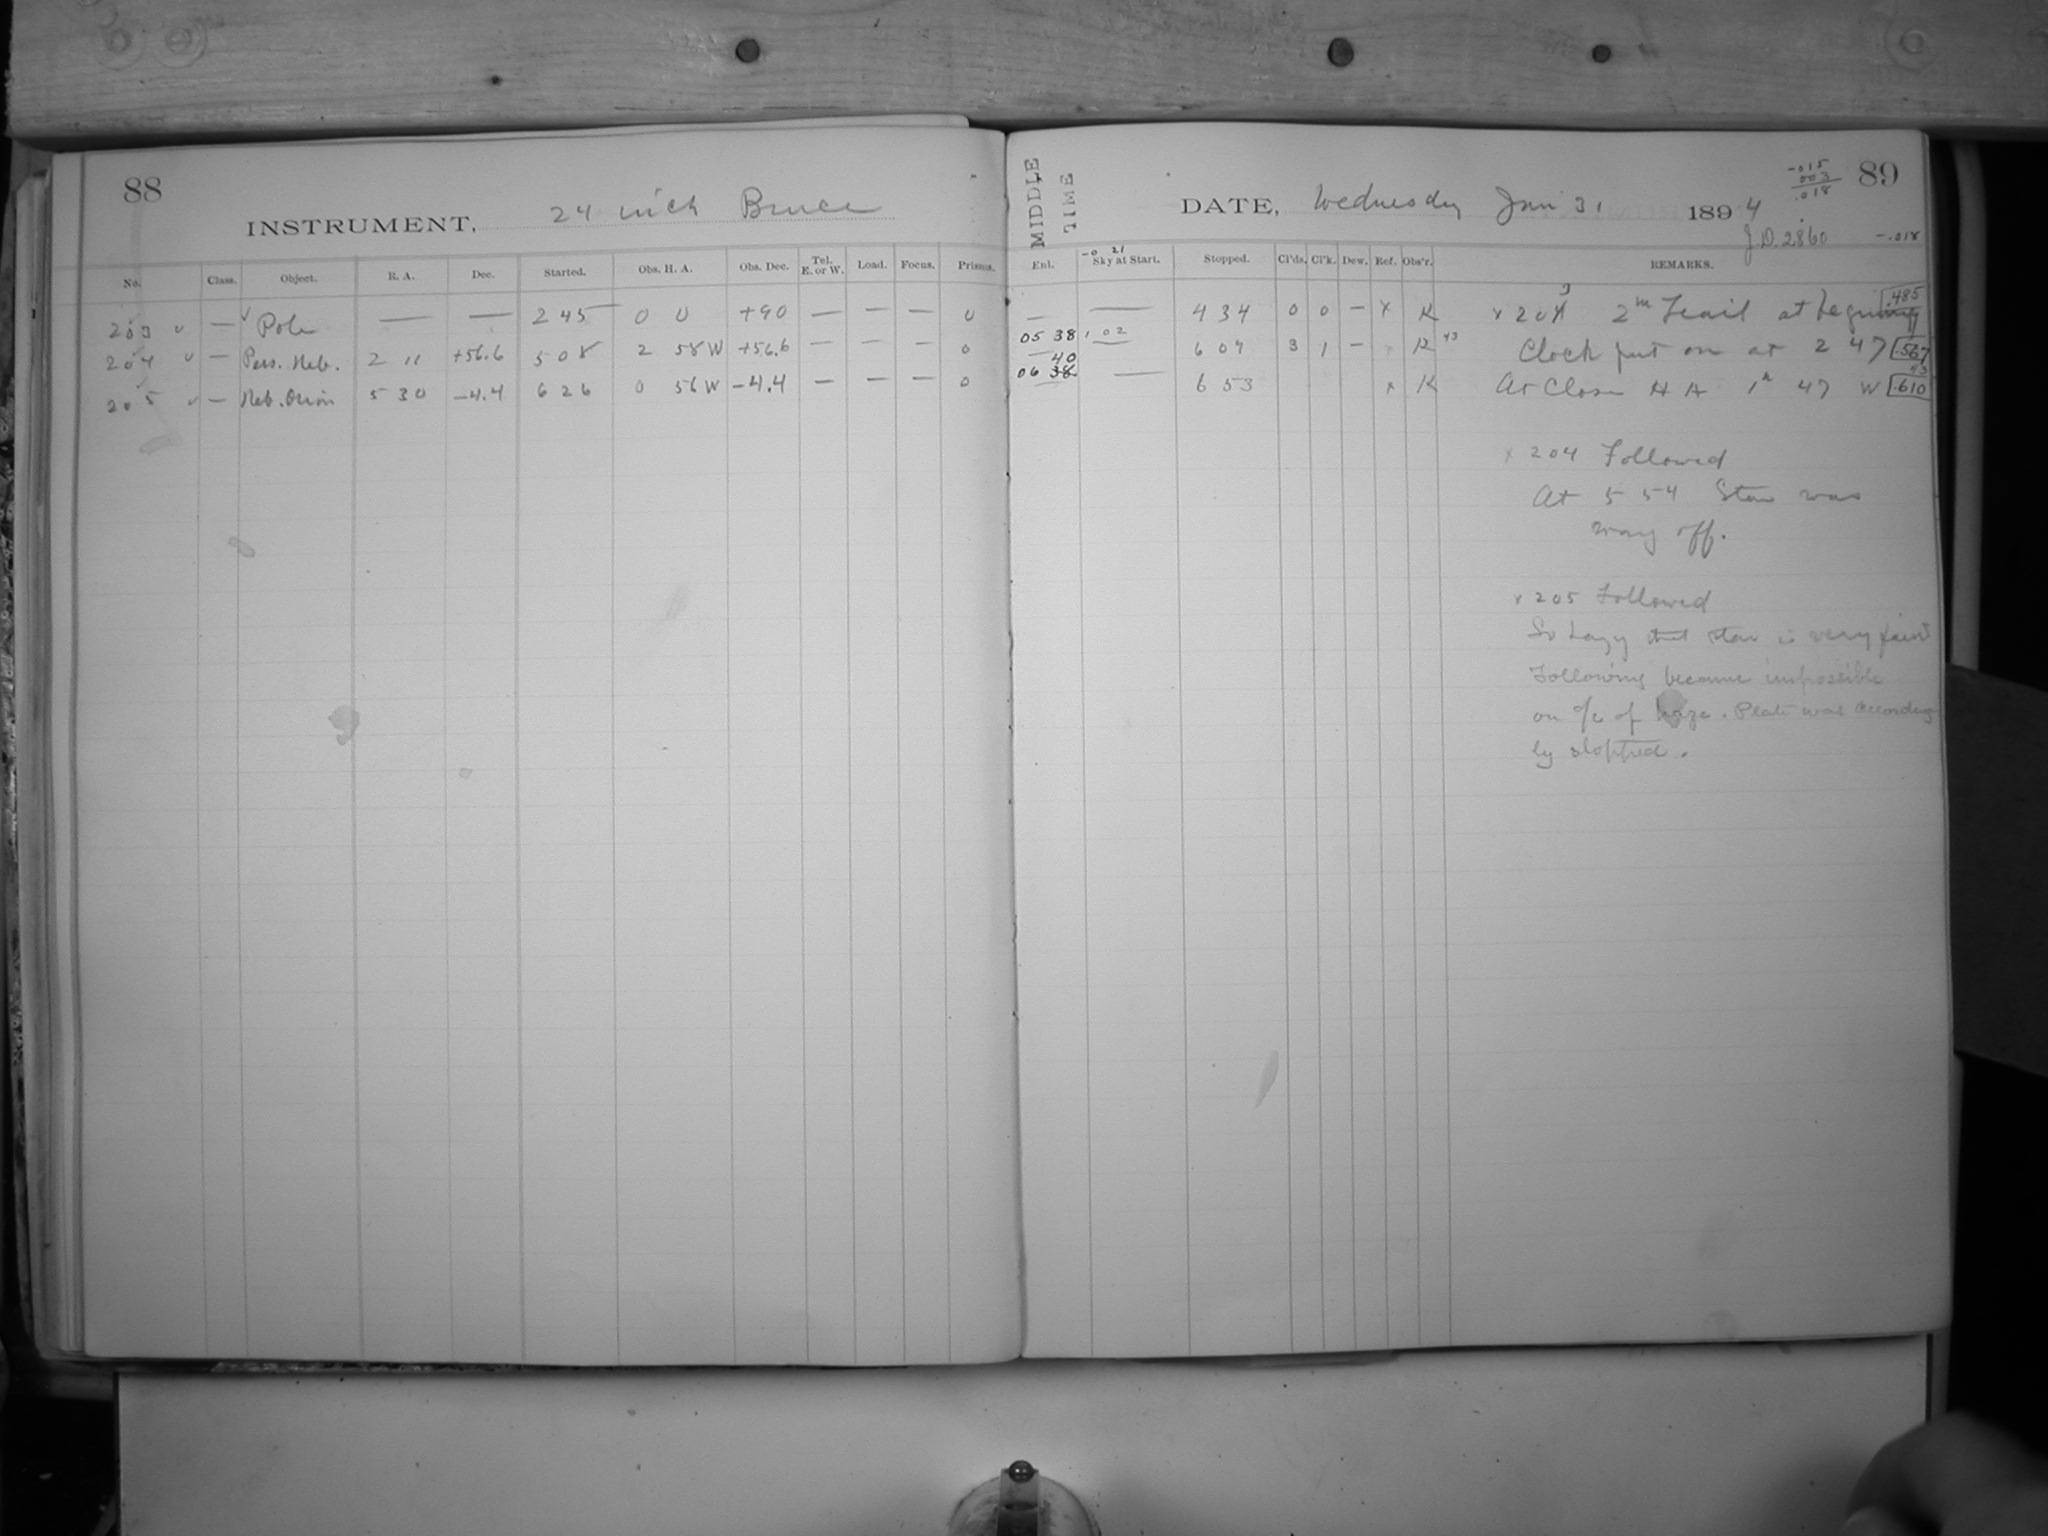 88
INSTRUMENT, 24 inch Bruce
No. Class. Object. R. A. Dec. Started. Obs. H. A. Obs. Dec. Tel. E. or W. Load. Focus. Prisms.
203 v — v Pole — — 2 45 0 0 +90 — — — 0
204 v — Pers. Neb. 2 11 +56.6 5 08 2 58 W +56.6 — — — 0
205 v — Neb. Orion 5 30 -4.4 6 26 0 56 W -4.4 — — — 0
MIDDLE TIME
DATE, Wednesday Jan 31 1894
89
-.015
003
.018
J.D. 2860 -.018
-0 21
Enl. Sky at Start. Stopped. Cl'ds. Cl'k. Dew. Ref. Obs'r. REMARKS.
— — 4 34 0 0 — x K x 203 2m Trail at beginning .485
05 38 1 02 — 6 07 3 1 — x K 43 Clock put on at 2 47 .567
40 43
06 38 — 6 53 x K At Close H A 1h 47 W .610
x 204 Followed
At 5 54 Star was
way off.
x 205 Followed
So hazy that star is very faint
Following became impossible
on a/c of haze. Plate was according-
ly stopped.